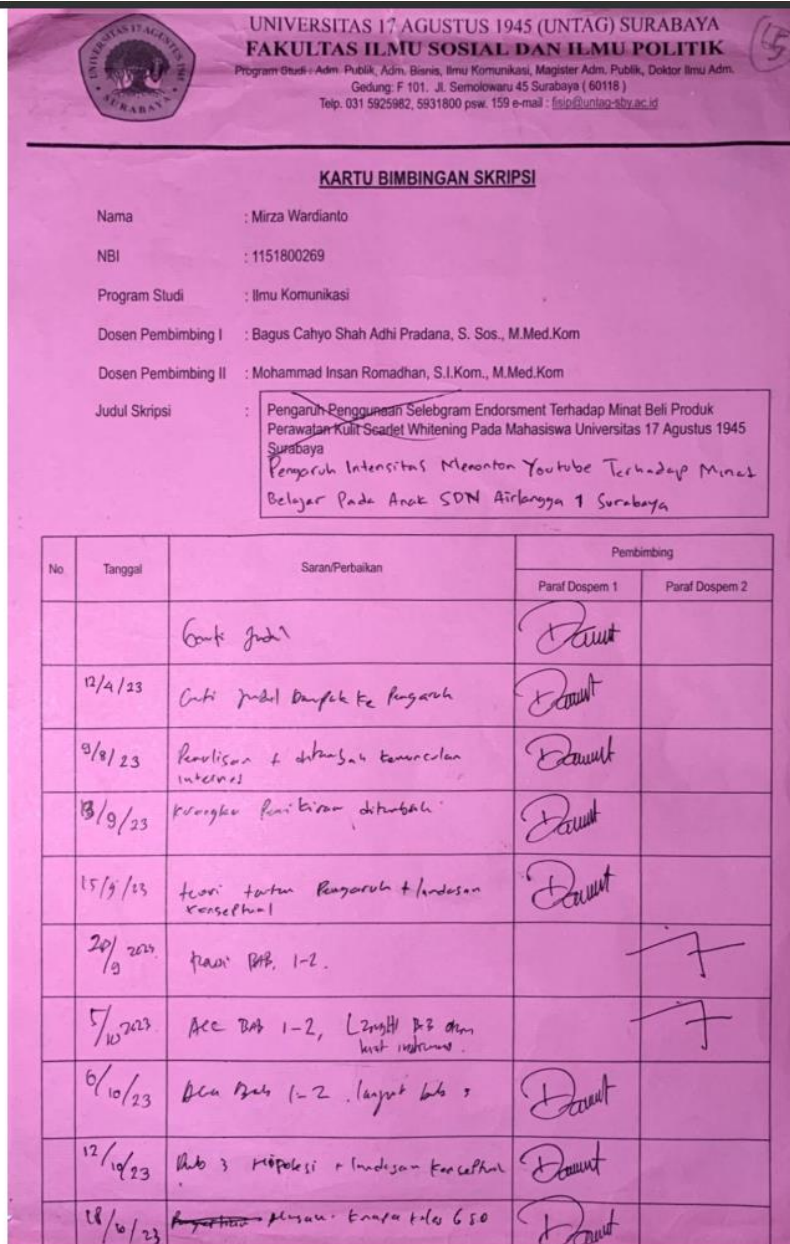 UNIVERSITAS 17 AGUSTUS 1945 (UNTAG) SURABAYA
FAKULTAS ILMU SOSIAL DAN ILMU POLITIK
Program Studi : Adm. Publik, Adm. Bisnis, Ilmu Komunikasi, Magister Adm. Publik, Doktor Ilmu Adm.
Gedung: F 101. Jl. Semolowaru 45 Surabaya ( 60118 )
Telp. 031 5925982, 5931800 psw. 159 e-mail : fisip@untag-sby.ac.id
UNIVERSITAS 17 AGUSTUS 1945
SURABAYA
KARTU BIMBINGAN SKRIPSI
Nama : Mirza Wardianto
NBI : 1151800269
Program Studi : Ilmu Komunikasi
Dosen Pembimbing I : Bagus Cahyo Shah Adhi Pradana, S. Sos., M.Med.Kom
Dosen Pembimbing II : Mohammad Insan Romadhan, S.I.Kom., M.Med.Kom
Judul Skripsi : Pengaruh Penggunaan Selebgram Endorsment Terhadap Minat Beli Produk
Perawatan Kulit Scarlet Whitening Pada Mahasiswa Universitas 17 Agustus 1945
Surabaya
Pengaruh Intensitas Menonton Youtube Terhadap Minat
Belajar Pada Anak SDN Airlangga 1 Surabaya
No. Tanggal Saran/Perbaikan Pembimbing
Paraf Dospem 1 Paraf Dospem 2
Ganti Judul
12/4/23 Ganti judul Dampak ke Pengaruh
9/8/23 Penulisan + ditambah kemunculan
internet
13/9/23 Kerangka Pemikiran ditambah
15/9/23 teori Pengaruh + landasan
konseptual
20/9 2023 BAB. 1-2.
5/10 2023 Acc BAB 1-2,
6/10/23 Acc Bab 1-2. lanjut bab 3
12/10/23 Bab 3 Hipotesis + landasan Konseptual
18/10/23 kelas 6 SD